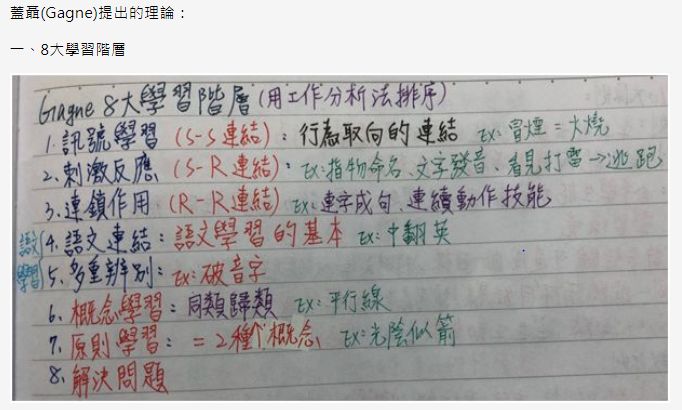 蓋聶(Gagne)提出的理論：
一、8大學習階層
Gagne 8大學習階層(用工作分析法排序)
1.訊號學習(S-S連結)：行為取向的連結 Ex:冒煙=火燒
2.刺激反應(S-R連結)：Ex:指物命名、文字發音、看見打雷→逃跑
3.連鎖作用(R-R連結) Ex:連字成句、連續動作技能
4.語文連結：語文學習的基本 Ex:中翻英
5.多重辨別：Ex:破音字
6.概念學習：同類歸類 Ex:平行線
7.原則學習：=2種概念 Ex:光陰似箭
8.解決問題